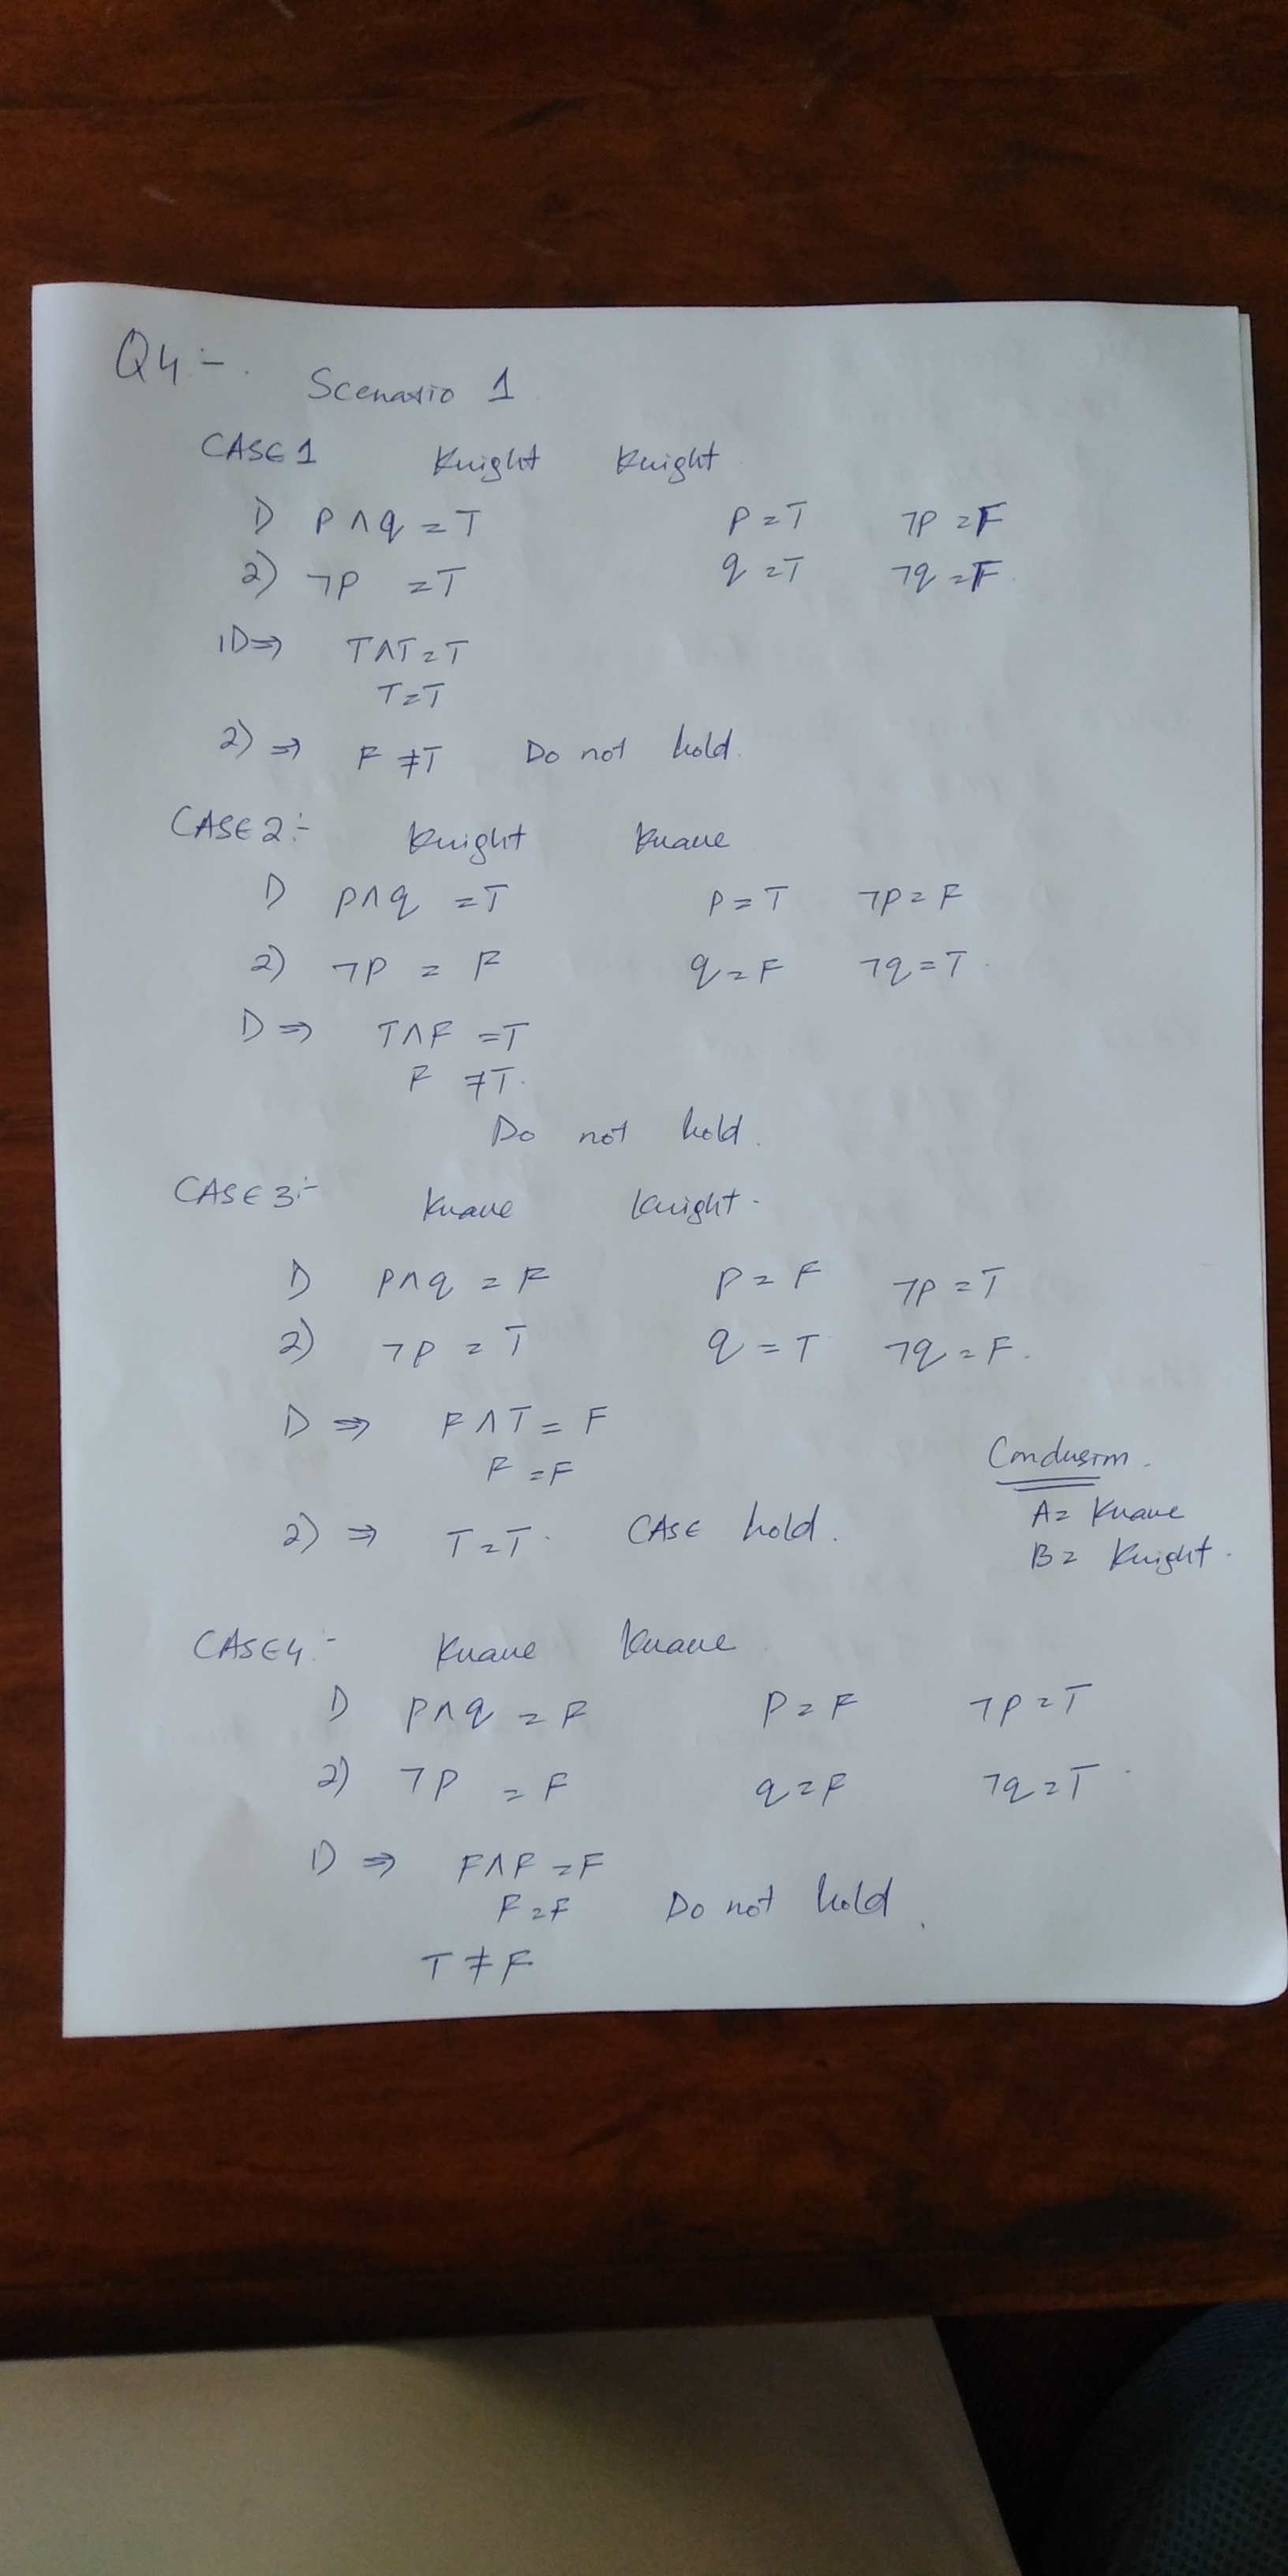 Q4:-.
Scenario 1
CASE 1 Knight Knight
1) P ∧ q = T P = T ¬P = F
2) ¬P = T q = T ¬q = F
1) ⇒ T ∧ T = T
T = T
2) ⇒ F ≠ T Do not hold.
CASE 2:- Knight Knave
1) P ∧ q = T P = T ¬P = F
2) ¬P = F q = F ¬q = T
1) ⇒ T ∧ F = T
F ≠ T.
Do not hold.
CASE 3:- Knave Knight.
1) P ∧ q = F P = F ¬P = T
2) ¬P = T q = T ¬q = F.
1) ⇒ F ∧ T = F
F = F
2) ⇒ T = T. CASE hold.
Conclusion.
A = Knave
B = Knight.
CASE 4:- Knave Knave
1) P ∧ q = F P = F ¬P = T
2) ¬P = F q = F ¬q = T
1) ⇒ F ∧ F = F
F = F Do not hold.
T ≠ F